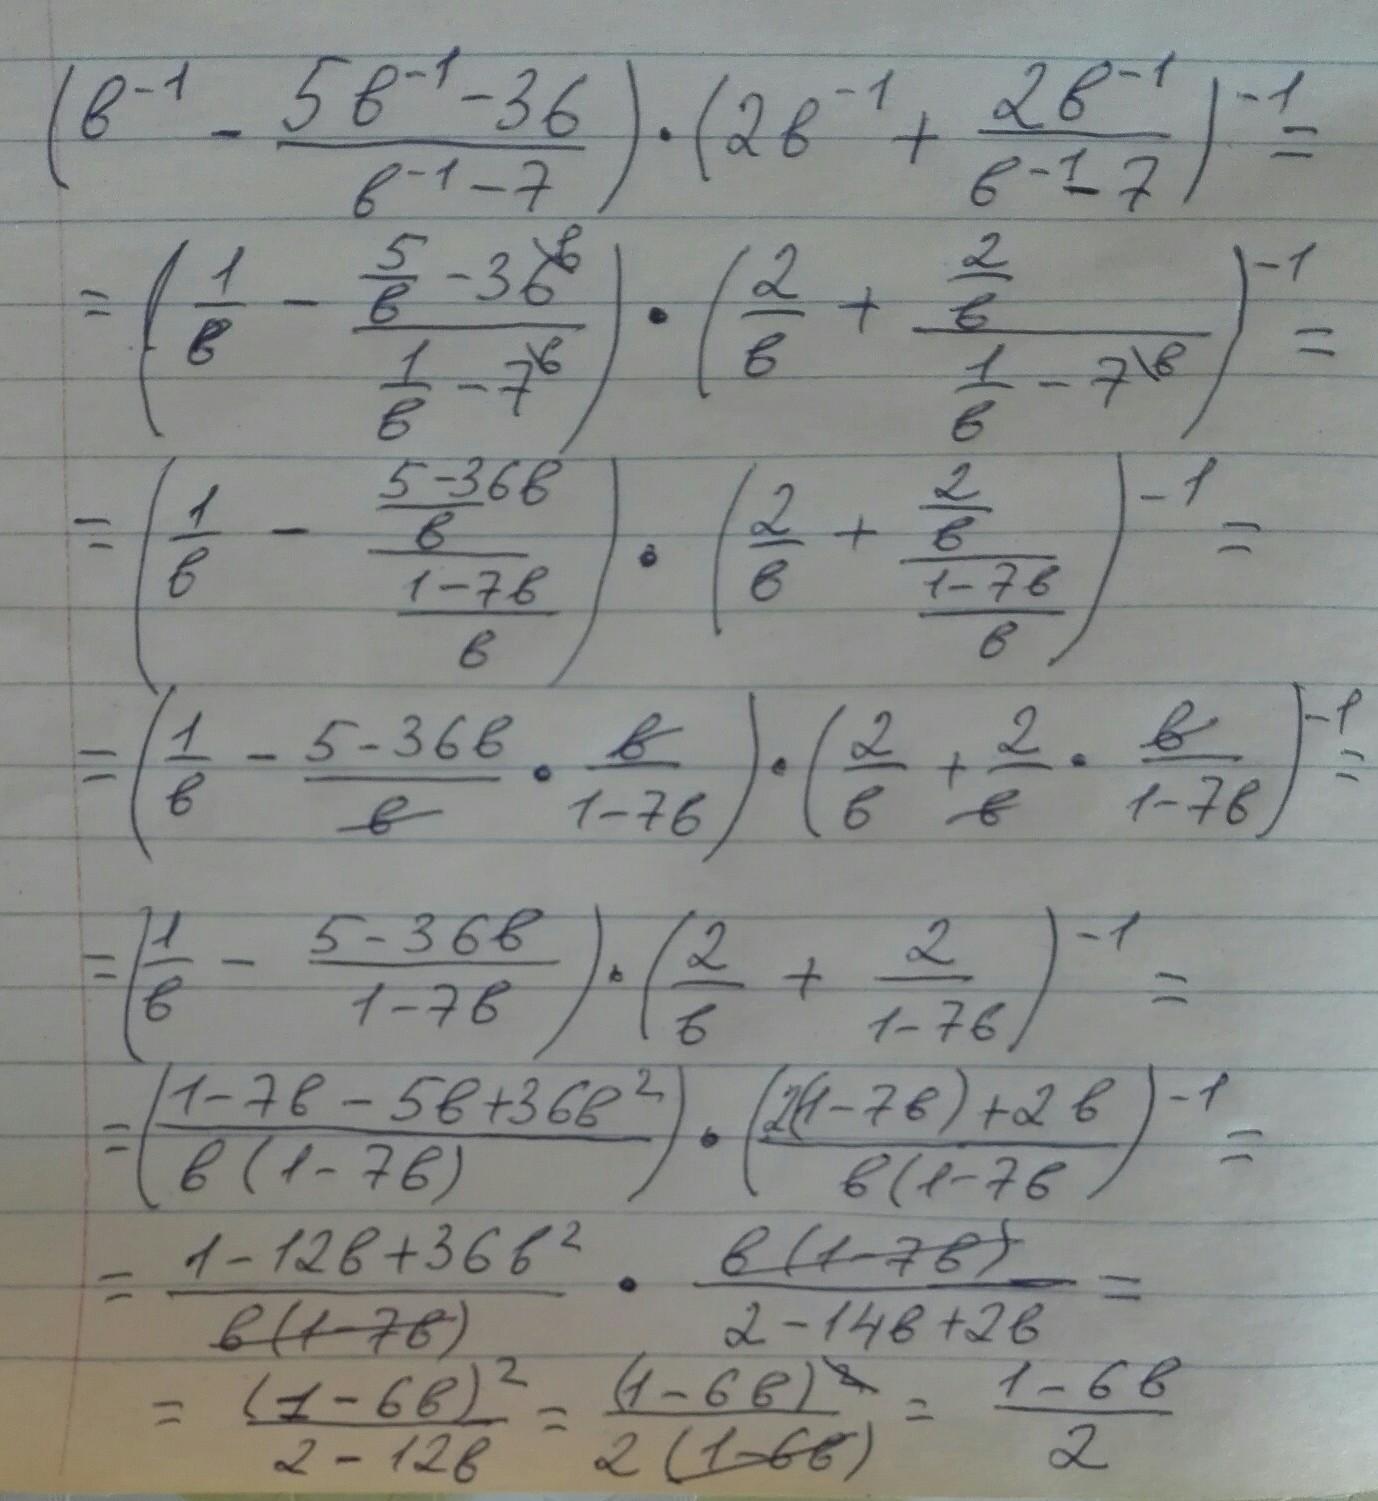 (в⁻¹ - (5в⁻¹ - 36)/(в⁻¹ - 7)) · (2в⁻¹ + 2в⁻¹/(в⁻¹ - 7))⁻¹ =
= (1/в - (5/в - 36\в)/(1/в - 7\в)) · (2/в + (2/в)/(1/в - 7\в))⁻¹ =
= (1/в - ((5 - 36в)/в)/((1 - 7в)/в)) · (2/в + (2/в)/((1 - 7в)/в))⁻¹ =
= (1/в - (5 - 36в)/в · в/(1 - 7в)) · (2/в + 2/в · в/(1 - 7в))⁻¹ =
= (1/в - (5 - 36в)/(1 - 7в)) · (2/в + 2/(1 - 7в))⁻¹ =
= ((1 - 7в - 5в + 36в²)/(в(1 - 7в))) · ((2(1 - 7в) + 2в)/(в(1 - 7в))⁻¹ =
= (1 - 12в + 36в²)/(в(1 - 7в)) · (в(1 - 7в))/(2 - 14в + 2в) =
= (1 - 6в)²/(2 - 12в) = (1 - 6в)²/(2(1 - 6в)) = (1 - 6в)/2